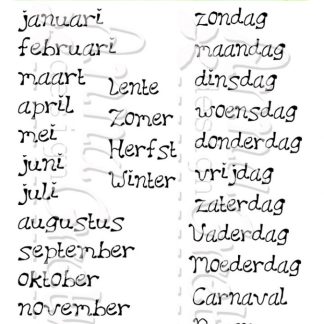 januari
februari
maart
april
mei
juni
juli
augustus
september
oktober
november
Lente
Zomer
Herfst
Winter
zondag
maandag
dinsdag
woensdag
donderdag
vrijdag
zaterdag
Vaderdag
Moederdag
Carnaval